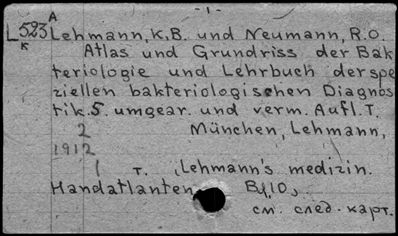 - 1 -
A
L523 Lehmann, K.B. und Neumann, R.O.
K
Atlas und Grundriss der Bak
teriologie und Lehrbuch der spe
ziellen bakteriologischen Diagnos
tik. 5. umgear. und verm. Aufl. T.
2 München, Lehmann,
1912
1 T. (Lehmann's medizin.
Handatlanten Bd, 10).
см. след. карт.